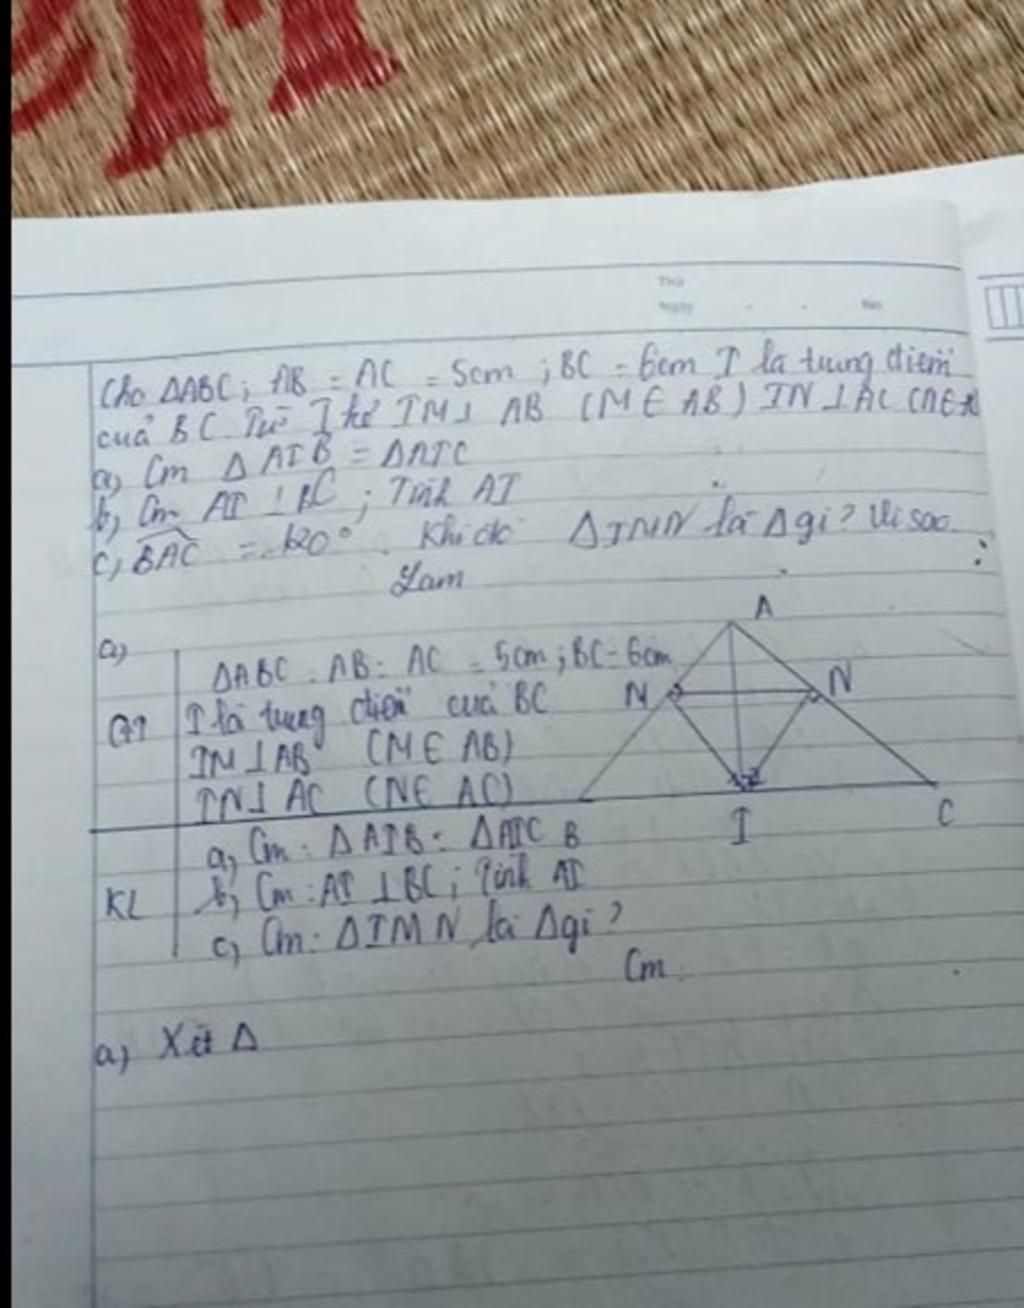 Thứ
Ngày No
Cho ΔABC; AB = AC = 5cm ; BC = 6cm I là trung điểm
của BC Từ I kẻ IM⊥ AB (M ∈ AB) IN ⊥ AC (N∈A
a) Cm Δ AIB = ΔAIC
b, Cm AI ⊥ BC ; Tính AI
c, BAC = 120° . Khi đó ΔIMN là Δgì? Vì sao.
Làm
a)
ΔABC. AB = AC = 5cm ; BC = 6cm
GT I là trung điểm của BC
IM⊥AB (M ∈ AB)
IN⊥ AC (N∈ AC)
A
M N
B I C
a, Cm : ΔAIB = ΔAIC
KL b, Cm : AI ⊥ BC ; Tính AI
c, Cm : ΔIMN là Δgì ?
Cm
a, Xét Δ